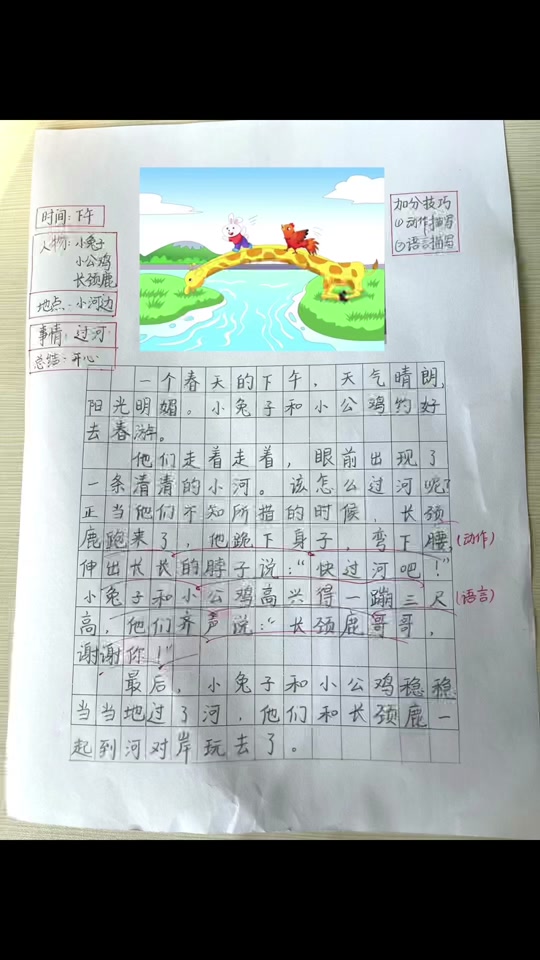 时间：下午
人物：小兔子
小公鸡
长颈鹿
地点：小河边
事情：过河
总结：开心
加分技巧
①动作描写
②语言描写
一个春天的下午，天气晴朗，
阳光明媚。小兔子和小公鸡约好
去春游。
他们走着走着，眼前出现了
一条清清的小河。该怎么过河呢？
正当他们不知所措的时候，长颈
鹿跑来了，他跪下身子，弯下腰，(动作)
伸出长长的脖子说：“快过河吧！”
小兔子和小公鸡高兴得一蹦三尺(语言)
高，他们齐声说：“长颈鹿哥哥，
谢谢你！”
最后，小兔子和小公鸡稳稳
当当地过了河，他们和长颈鹿一
起到河对岸玩去了。